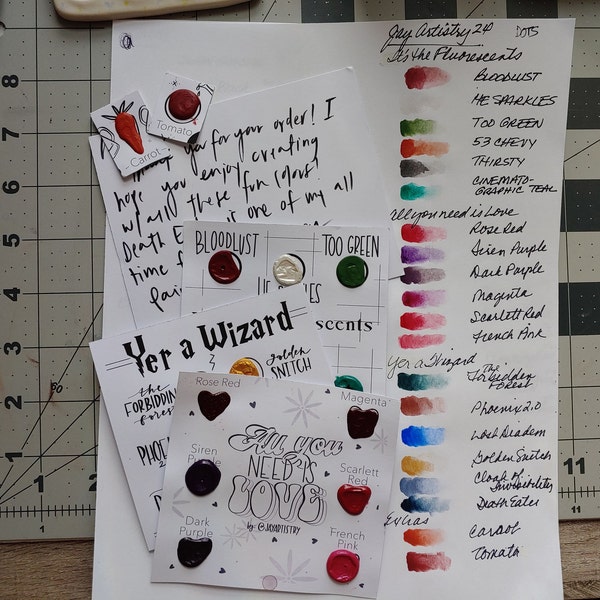 Jay Artistry 24
DOTS
It's the Fluorescents
BLOODLUST
HE SPARKLES
TOO GREEN
53 CHEVY
THIRSTY
CINEMATO-
GRAPHIC TEAL
all you need is Love
Rose Red
Siren Purple
Dark Purple
Magenta
Scarlett Red
French Pink
Yer a Wizard
The
Forbidden
Forest
Phoenix 2.0
Loch Deadem
Golden Snitch
Cloak of
Invisibility
Death Eater
Extras
Carrot
Tomato
Tomato
Carrot
you for your order! I
hope you enjoy creating
w/ all these fun colour!
Death E is one of my all
time f
pai
BLOODLUST
TOO GREEN
HE ES
scents
Yer a Wizard
golden
SNITCH
the
FORBIDDEN
Fores
PHOE
2.0
Rose Red
Magenta
All you
NEED IS
LOVE
by: @JAYARTISTRY
Siren
Purple
Scarlett
Red
Dark
Purple
French
Pink
8
7
6
5
4
3
2
1
11
11